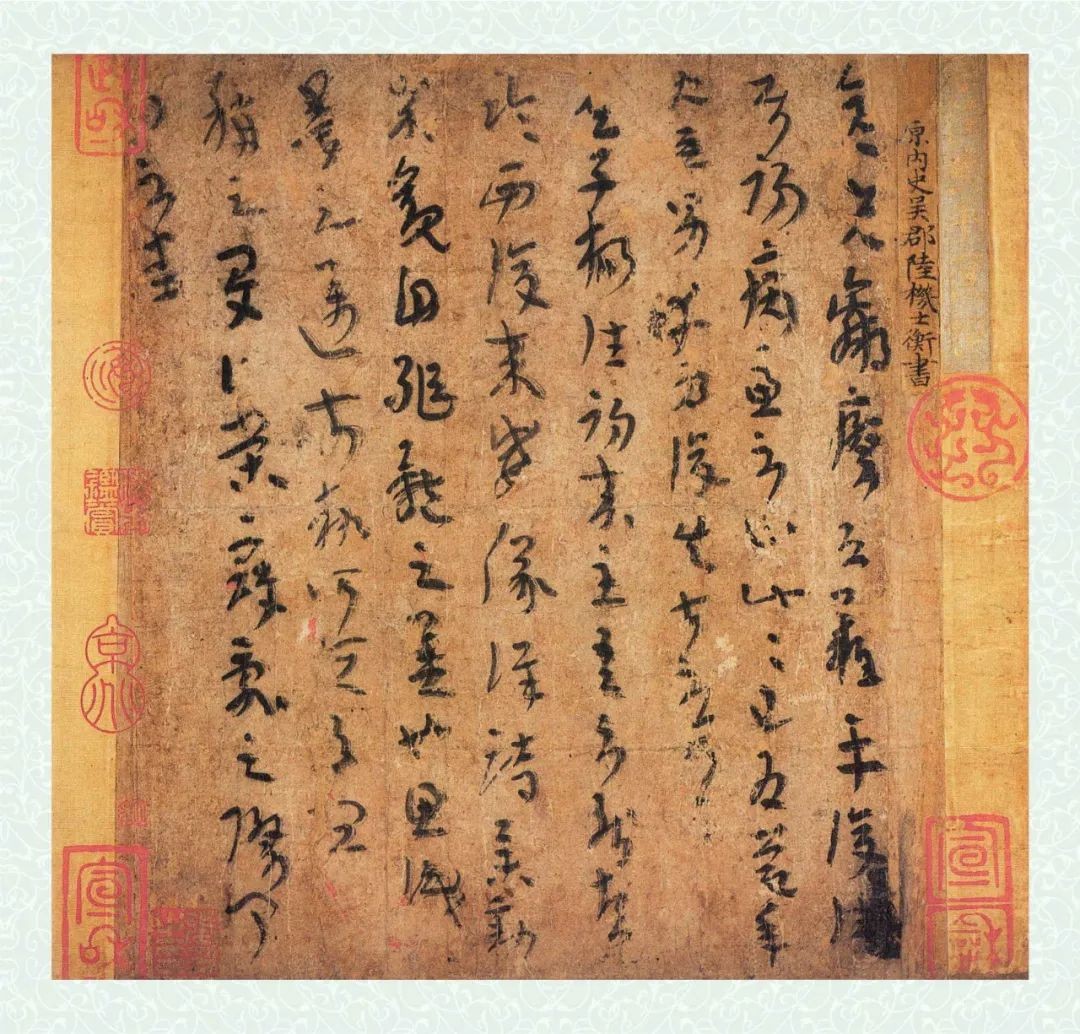 原内史吴郡陸機士衡書
彦先羸瘵恐難平復往屬
初病慮不止此此已為慶承
使男幸為復失前憂耳
子楊往初來主吾不能盡
臨西復來威儀詳跱舉動
成觀自軀體之美也思識
量之邁前執所恒有宜
稱之夏榮寇亂之際聞
問不悉
宣和
政和
宣和